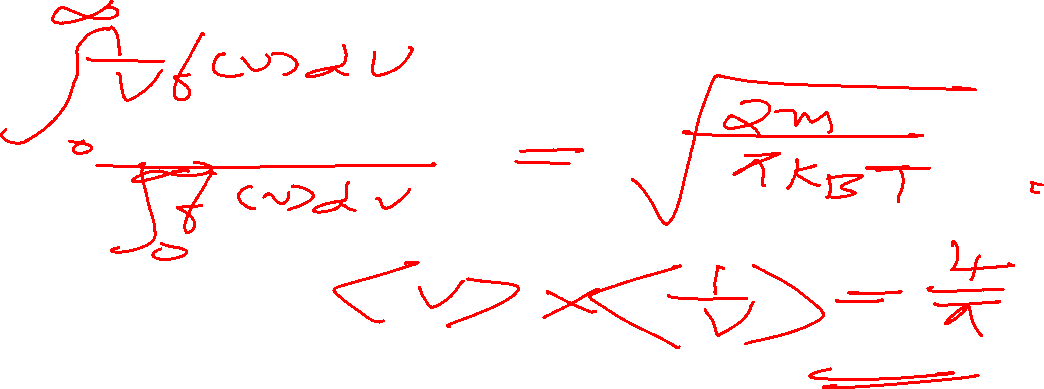 ∫₀^∞ 1/v f(v)dv / ∫₀^∞ f(v)dv = √(2m/πK_BT) .
<v> × <1/v> = 4/π